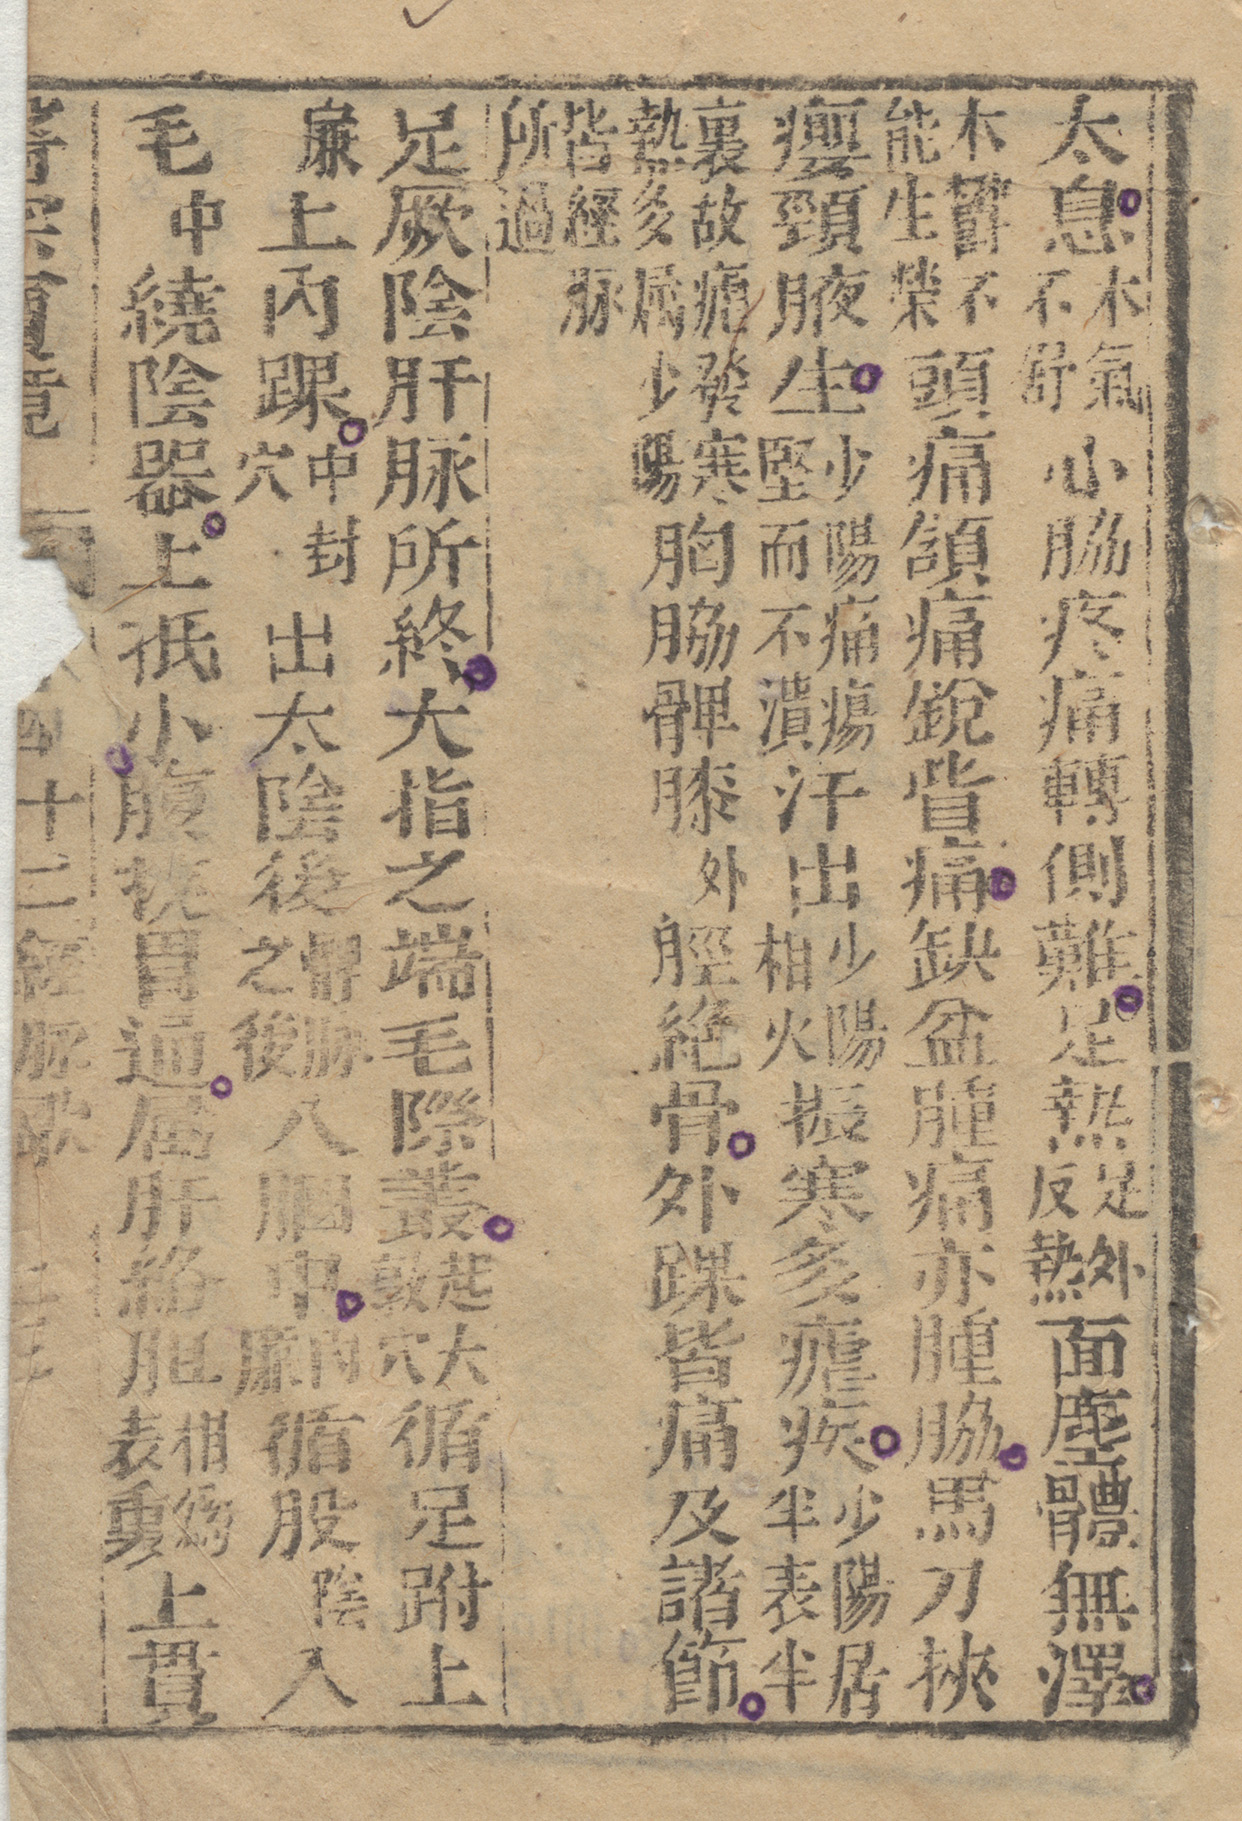 太息木氣不舒小脇疼痛轉側難足熱足外反熱面塵體無澤
木鬱不能生榮頭痛頷痛銳眥痛缺盆腫痛亦腫脇馬刀挾
癭頸腋生少陽痛瘍堅而不潰汗出少陽相火振寒多瘧疾少陽居半表半
裏故瘧發寒熱多屬少陽胸脇髀膝外脛絶骨外踝皆痛及諸節
皆經脉所過
足厥陰肝脉所終大指之端毛際叢起大敦穴循足跗上
廉上內踝中封穴出太陰後脾脉之後入膕中內廉循股陰入
毛中繞陰器上抵小腹挾胃過屬肝絡胆相為表裏上貫
四十二經脉歌